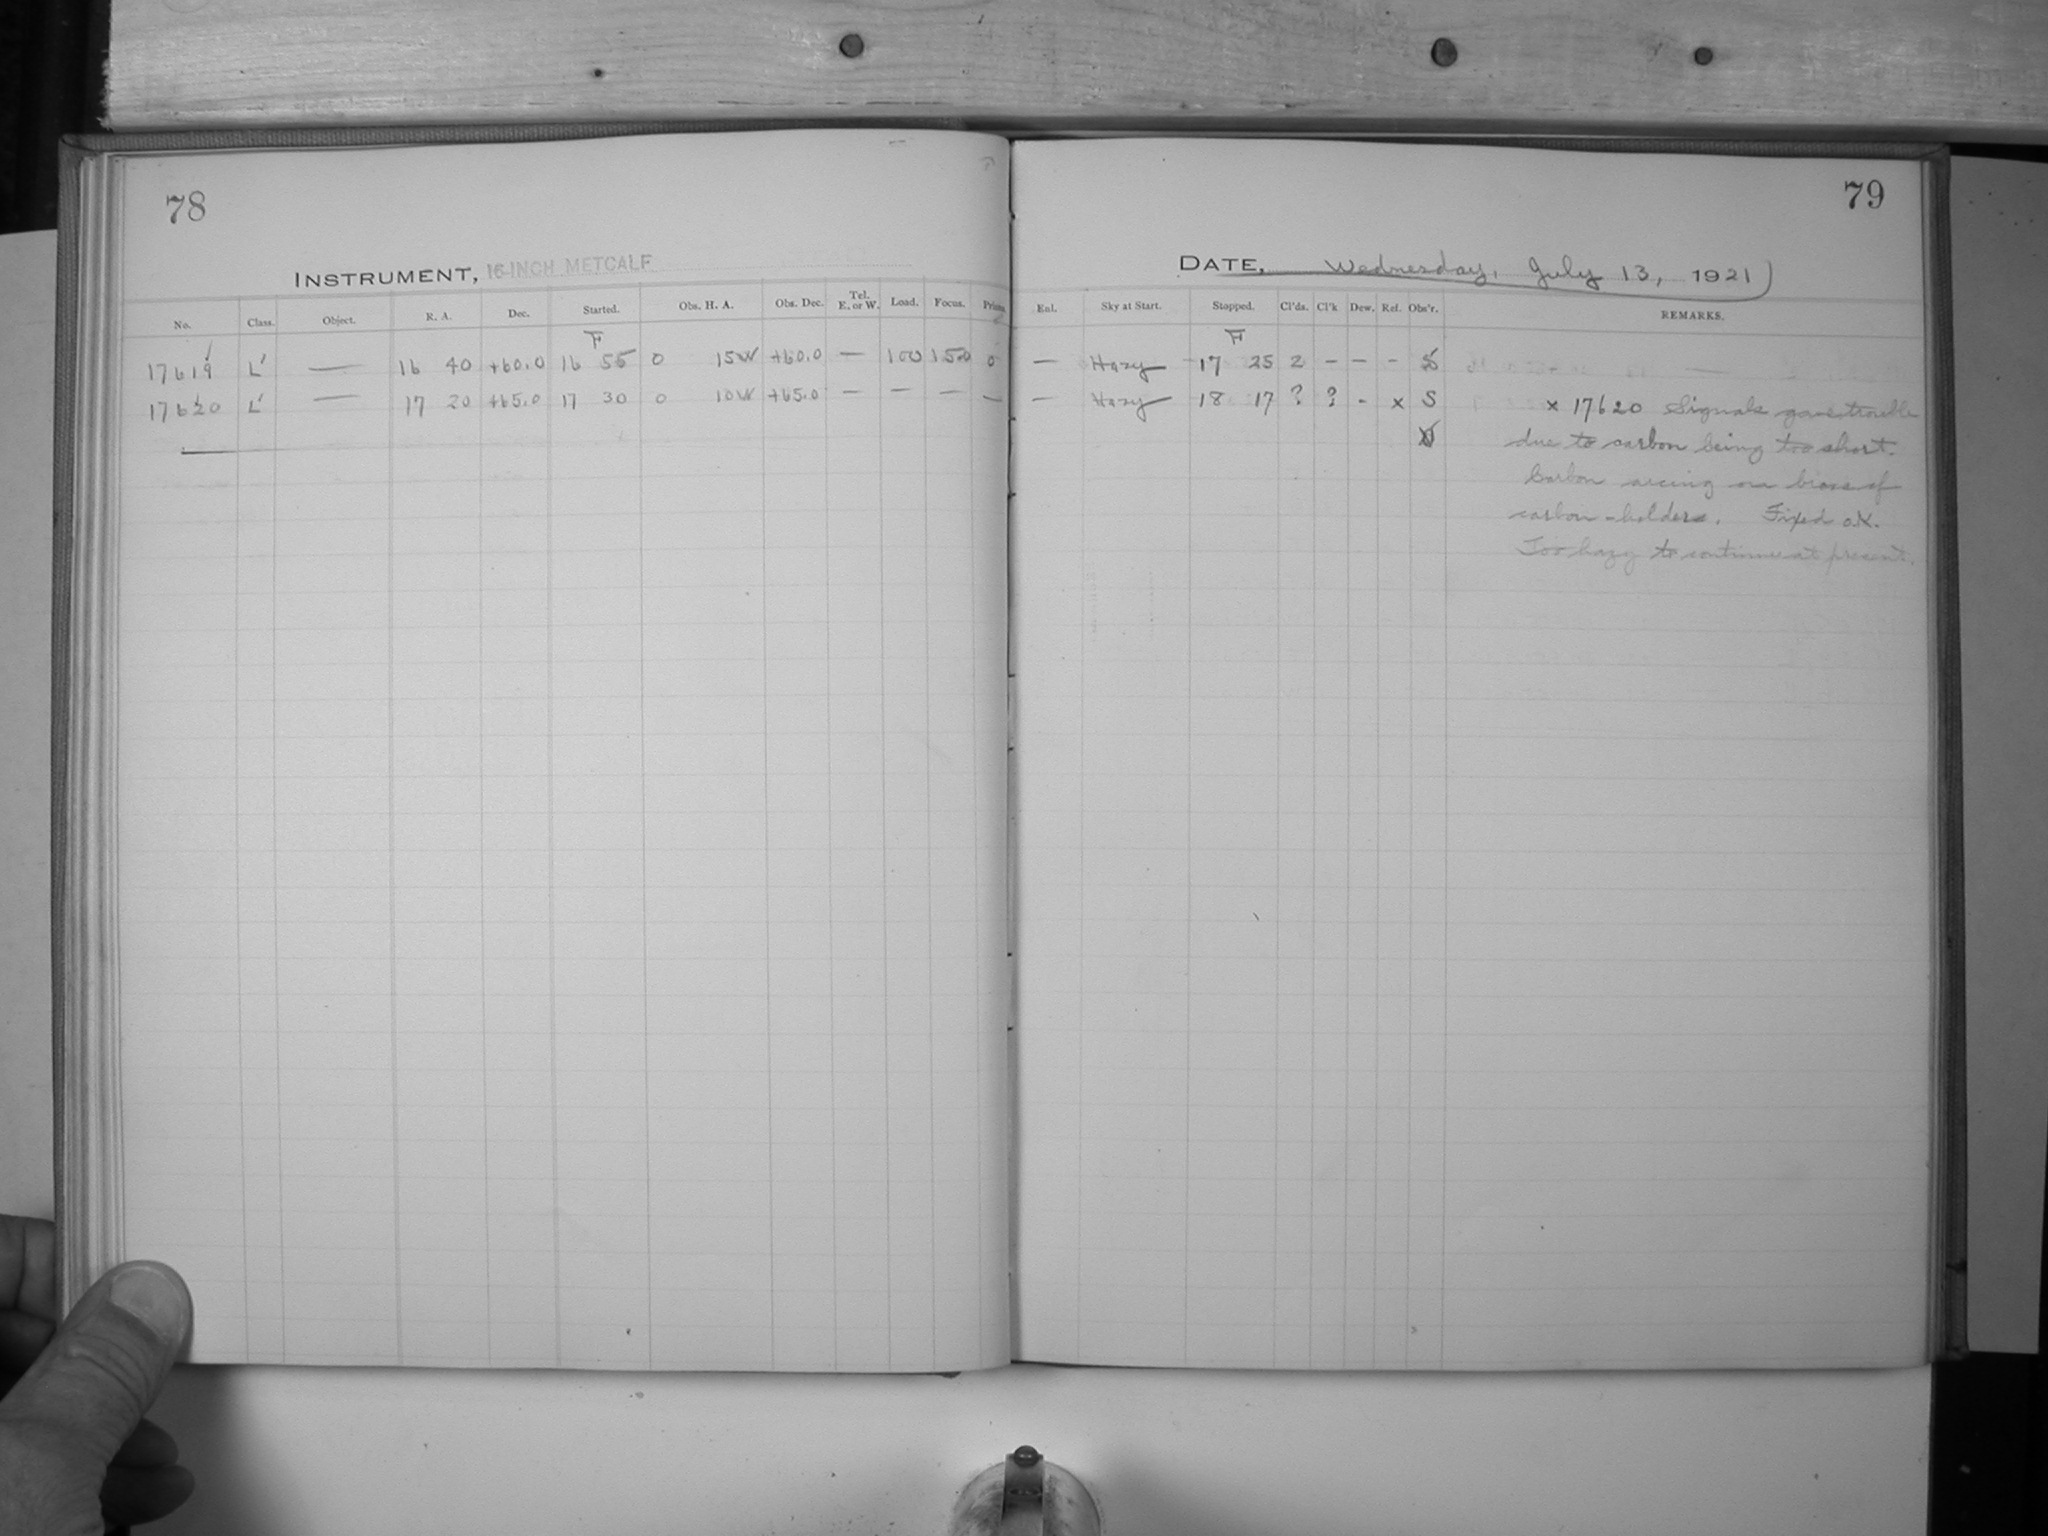 78
INSTRUMENT, 16-INCH METCALF
No. Class. Object. R. A. Dec. Started. Obs. H. A. Obs. Dec. Tel. E. or W. Load. Focus. Prism.
F
17619 L' — 16 40 +60.0 16 55 0 15W +60.0 — 100 150 0
17620 L' — 17 20 +65.0 17 30 0 10W +65.0 — — — —
79
DATE, Wednesday, July 13, 1921
Enl. Sky at Start. Stopped. Cl'ds. Cl'k Dew. Ref. Obs'r. REMARKS.
F
— Hazy 17 25 2 - - - S
— Hazy 18 17 ? ? - x S x 17620 Signals gave trouble
due to carbon being too short.
Carbon arcing on brass of
carbon-holders. Fixed O.K.
Too hazy to continue at present.